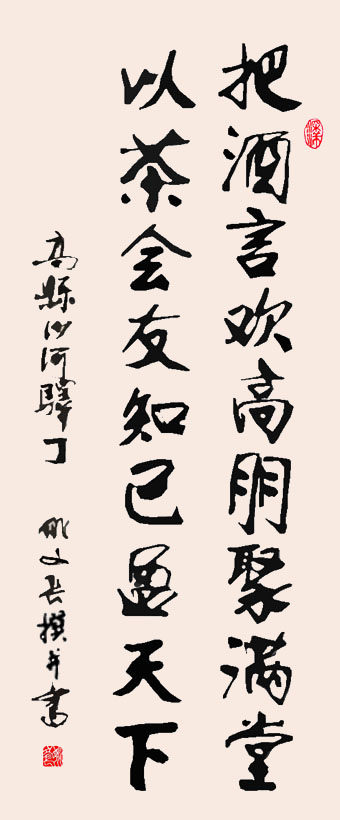 把酒言欢高朋聚满堂
以茶会友知己遍天下
高縣沙河驛
文長撰并書